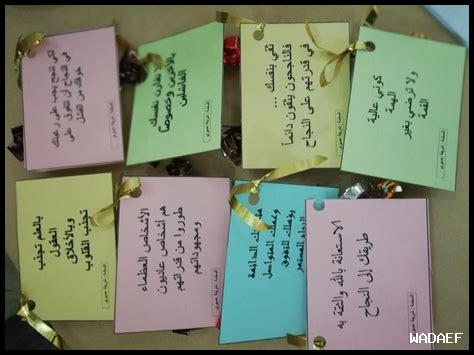 لكي تنجح يجب على رغبتك
في النجاح أن تتفوق على
خوفك من الفشل
تقارن نفسك
بالآخرين وخصوصاً
الفاشلين
ثقي بنفسك ...
فالناجحون يثقون دائماً
في قدرتهم على النجاح
كوني عالية
الهمة
ولا ترضي بغير
القمة
بالعلم تجذب
العقول
وبالأخلاق
تجذب القلوب
الأشخاص العظماء
هم أشخاص عاديون
طوروا من قدراتهم
ومجهوداتهم
وعملك المتواصل
يؤهلك للتفوق
المستمر
الاستعانة بالله والثقة به
طريقك إلى النجاح
WADAEF